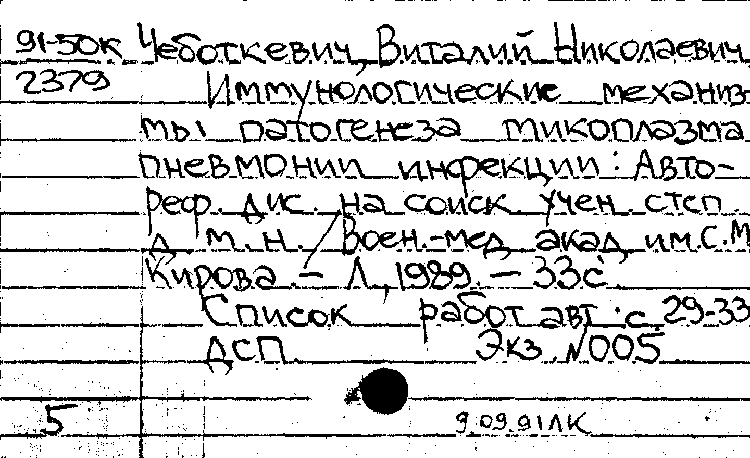 91-50к Чеботкевич, Виталий Николаевич
2379 Иммунологические механиз-
мы патогенеза микоплазма
пневмонии инфекции: Авто-
реф. дис. на соиск учен степ.
д. м. н. / Воен.-мед. акад. им. С. М
Кирова – Л., 1989. – 33с
Список работ авт.: с. 29-33
ДСП. Экз. N005
5 9.09.91 ЛК